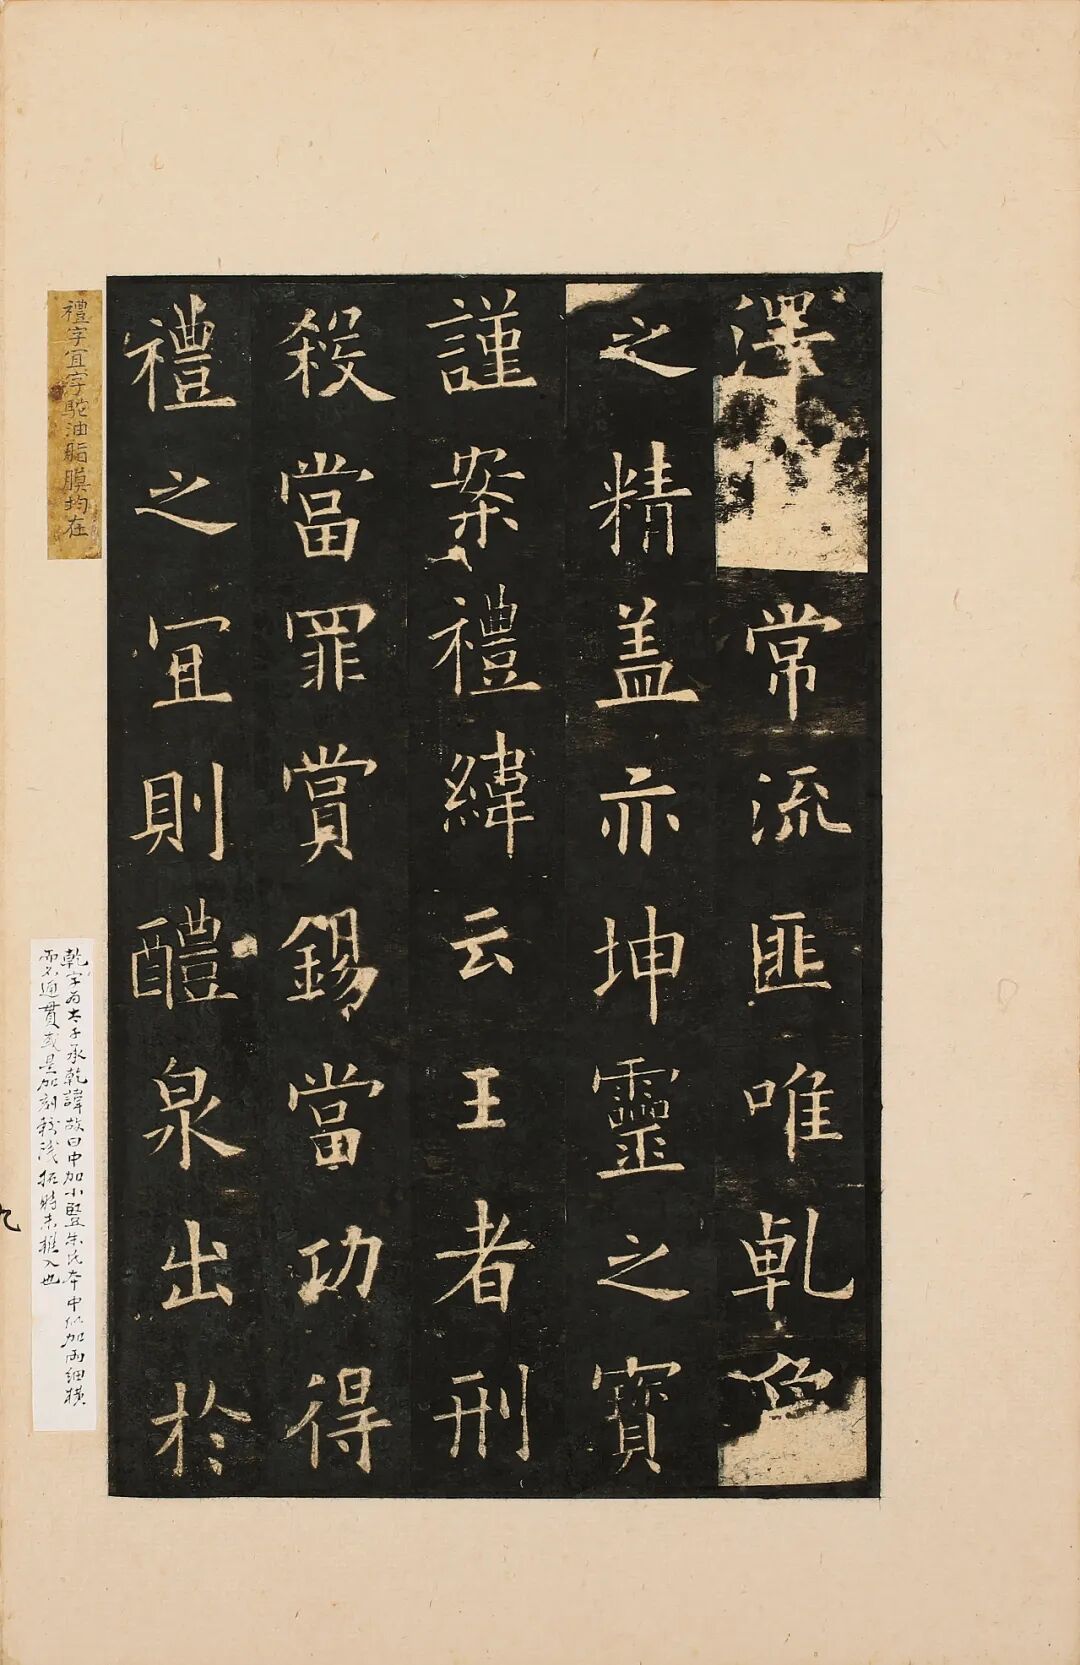 澤常流匪唯乹象
之精蓋亦坤靈之寶
謹案禮緯云王者刑
殺當罪賞錫當功得
禮之宜則醴泉出於
禮字宜字駝油脂膜均在
乾字為太子承乾諱故曰中加小豎朱氏本中似加兩細橫
而不通貫或是加刻較淺拓時未搥入也